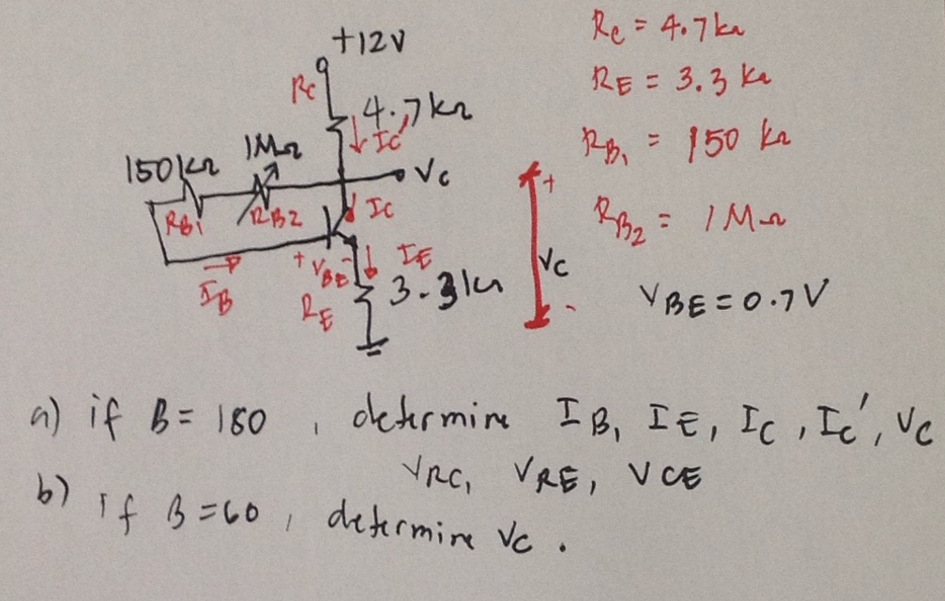 +12V
RC
4.7kΩ
IC'
150kΩ
1MΩ
VC
RB1
RB2
IC
IB
+ VBE -
IE
RE
3.3kΩ
+
VC
-
RC = 4.7kΩ
RE = 3.3 kΩ
RB1 = 150 kΩ
RB2 = 1MΩ
VBE = 0.7V
a) if B = 180 , determine IB, IE, IC, IC', VC
VRC, VRE, VCE
b) if B = 60 , determine VC .